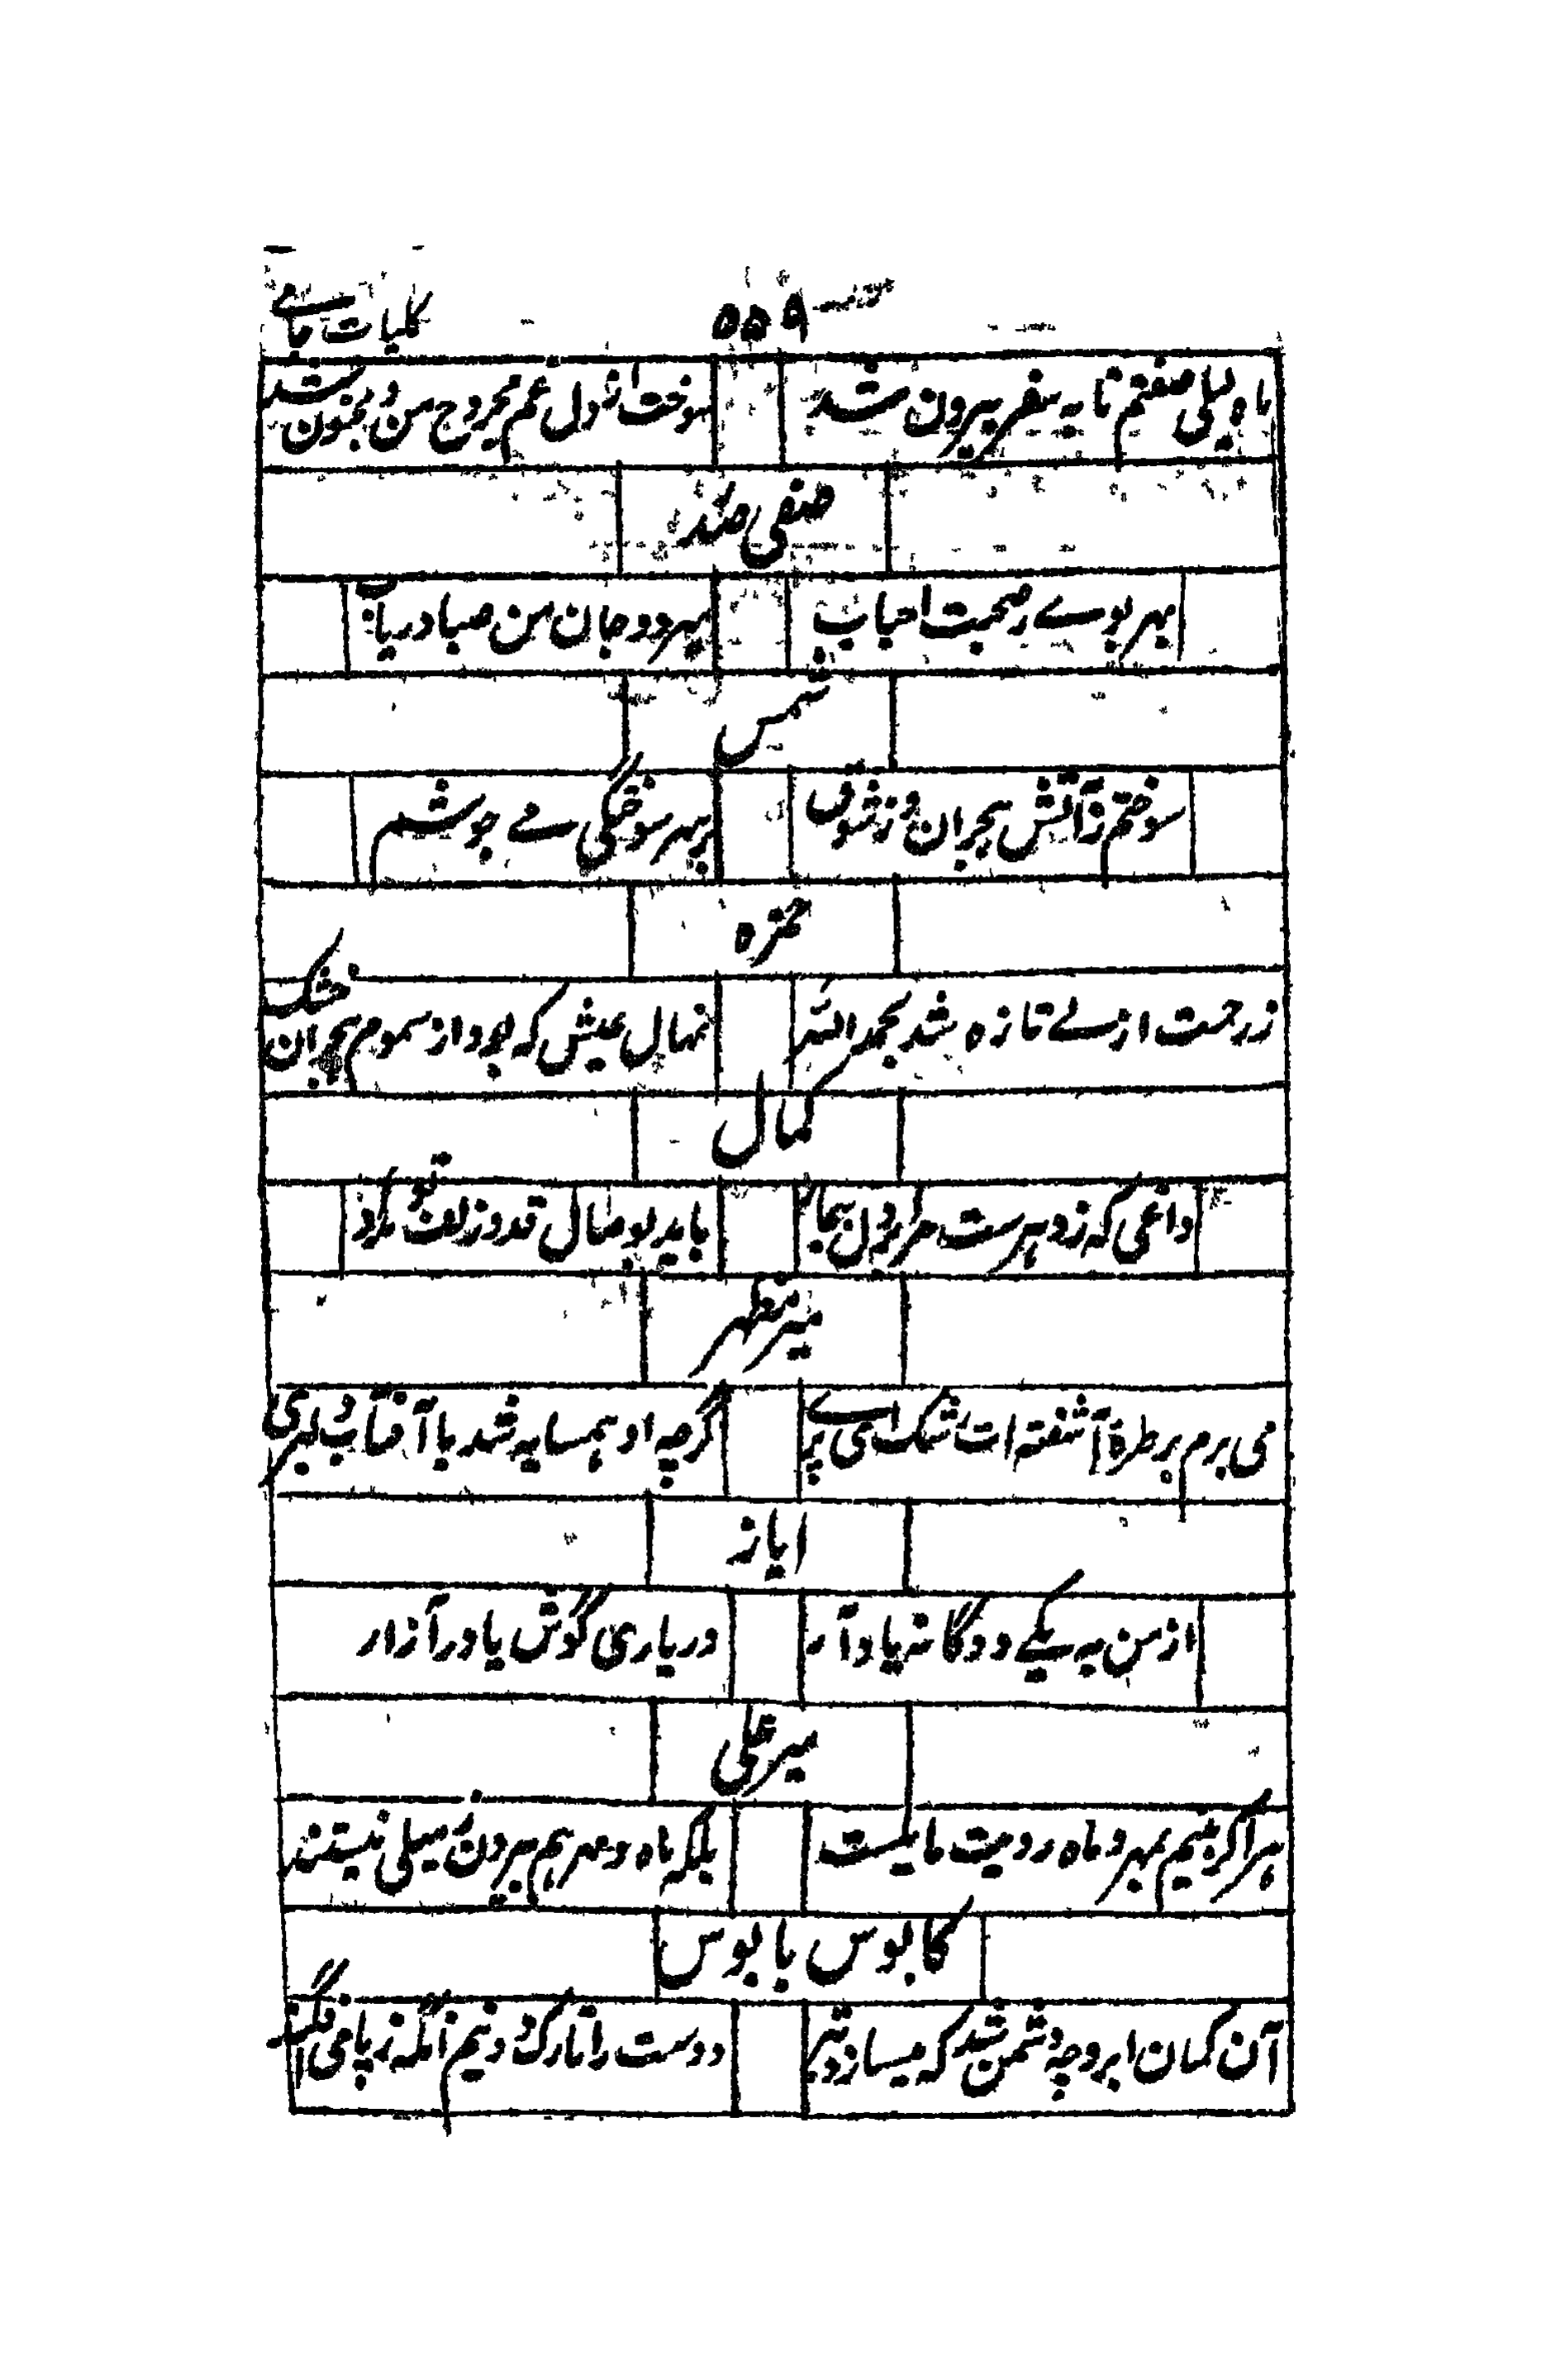 کلیات جامے
۵۵۹
ماه لیلی صفتم تا به سفر بیرون شد
سوخت از دل غم مجروح من و مجنون شد
صفی
بهر بوے ز صحبت احباب
بهر دو جان من صبا دریاب
شمس
سوختم ز آتش هجران و ز شوق
بهر سوختگی مے جوشم
حمزه
ز رحمت ازلے تازه شد بحمد الله
نهال عیش که بود از سموم هجران خشک
کمال
داغی که ز دهرست مرا بر دل
باید بوصال قد و زلف تو
میر مظهر
می برم بر طرهٔ آشفته ات اشک اے پری
گرچه او همسایه شد با آفتاب و
ایاز
از من به یکے دوگانه یاد آر
در یاری گوش یا در آزار
میر علی
هر اگر بینیم بمهر و ماه رویت مایلست
بلکه ماه و مهر هم بیرون ز میلی نیستند
کابوس بابوس
آن کمان ابرو چه دشمن شد که میسازد تیر
دوست را تارک دو نیم آنگه ز پا می افگند